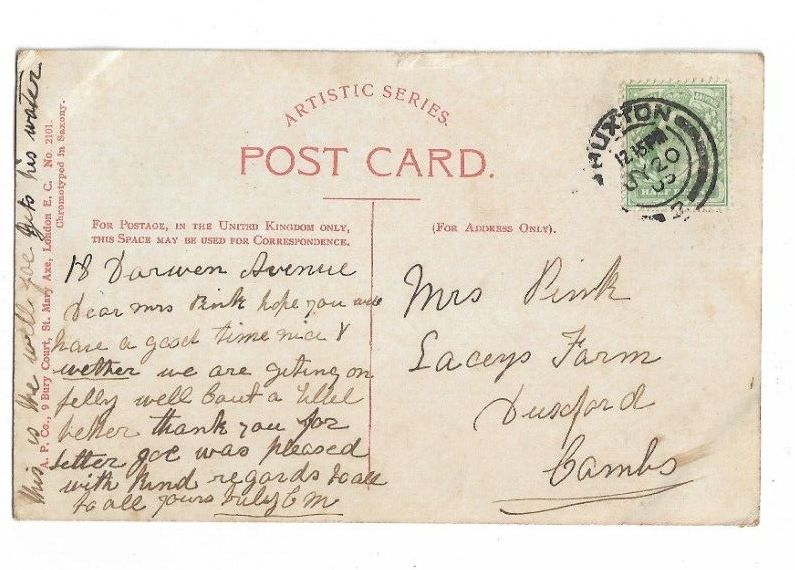 ARTISTIC SERIES.
POST CARD.
FOR POSTAGE, IN THE UNITED KINGDOM ONLY,
THIS SPACE MAY BE USED FOR CORRESPONDENCE.
(FOR ADDRESS ONLY).
18 Darwen Avenue
Dear Mrs Pink hope you are
have a good time nice
wether we are giting on
felly well bout a littel
better thank you for
letter Joe was pleased
with Kind regards to all
to all yours truly C M
Mrs Pink
Laceys Farm
Duxford
Cambs
HUXTON
12.15 PM
20
HALF
This is the well Joe gets his water
A. P. Co., 9 Bury Court, St. Mary Axe, London E. C. No. 2101.
Chromotyped in Saxony.